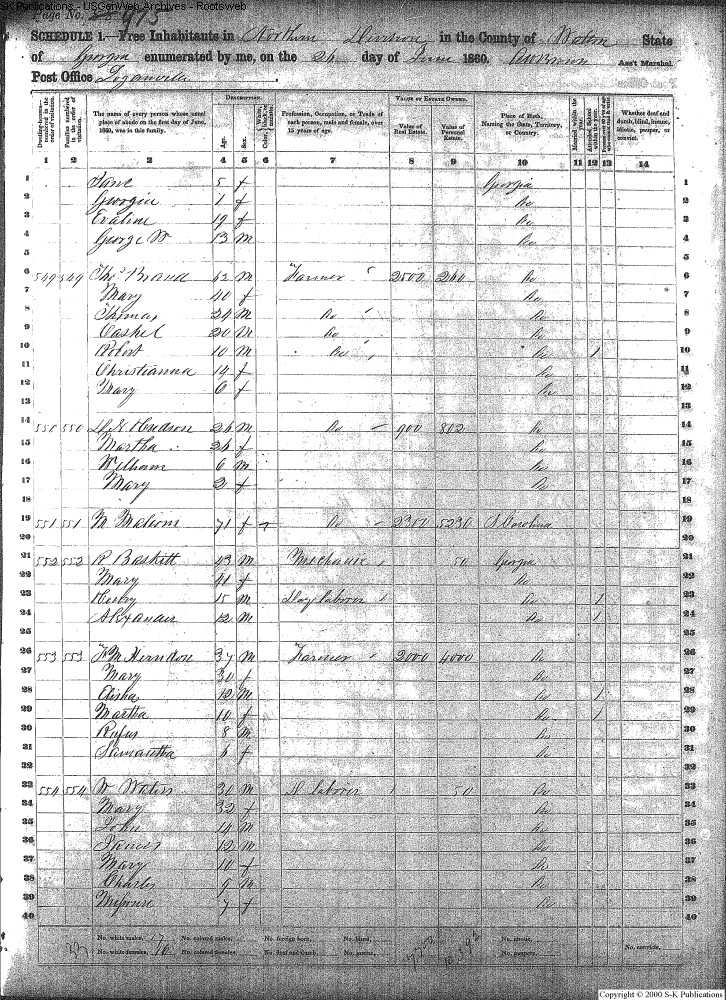 SK Publications - USGenWeb Archives - Rootsweb
Page No. 975
SCHEDULE 1.—Free Inhabitants in Northern Division in the County of Walton State
of Georgia enumerated by me, on the 26 day of June 1860. Ass't Marshal.
Post Office Loganville
Dwelling-houses—numbered in the order of visitation.
Families numbered in the order of visitation.
The name of every person whose usual place of abode on the first day of June, 1860, was in this family.
DESCRIPTION.
Age.
Sex.
Color, White, black, or mulatto.
Profession, Occupation, or Trade of each person, male and female, over 15 years of age.
VALUE OF ESTATE OWNED.
Value of Real Estate.
Value of Personal Estate.
Place of Birth, Naming the State, Territory, or Country.
Married within the year.
Attended School within the year.
Whether deaf and dumb, blind, insane, idiotic, pauper, or convict.
1 2 3 4 5 6 7 8 9 10 11 12 13 14
1 Jane 5 f Georgia 1
2 Georgia 1 f Do 2
3 Evaline 19 f Do 3
4 George W 13 m Do 4
5 5
6 549 549 Thos Brand 62 m Farmer 2500 260 Do 6
7 Mary 40 f Do 7
8 Thomas 24 m Do Do 8
9 Caskel 20 m Do Do 9
10 Robert 10 m Do Do 1 10
11 Christianna 14 f Do 11
12 Mary 6 f Do 12
13 13
14 550 550 Hudson 26 m Do 900 802 Do 14
15 Martha 26 f Do 15
16 William 6 m Do 16
17 Mary 2 f Do 17
18 18
19 551 551 M Malcom 71 f Do 2300 5230 S Carolina 19
20 20
21 552 552 R Baskett 43 m Mechanic 50 Georgia 21
22 Mary 41 f Do 22
23 Henry 15 m Day laborer Do 1 23
24 Alexander 12 m Do 1 24
25 25
26 553 553 Herndon 37 m Farmer 2000 4000 Do 26
27 Mary 30 f Do 27
28 Elisha 12 m Do 1 28
29 Martha 10 f Do 1 29
30 Rufus 8 m Do 30
31 Samantha 6 f Do 31
32 32
33 554 554 W Waters 30 m D laborer 50 Do 33
34 Mary 32 f Do 34
35 John 14 m Do 35
36 James 12 m Do 36
37 Mary 10 f Do 37
38 Charles 9 m Do 38
39 Missouri 7 f Do 39
40 40
No. white males, 17 No. colored males, No. foreign born, No. blind, No. idiotic, No. convicts,
No. white females, No. colored females, No. deaf and dumb, No. insane, No. paupers,
Copyright © 2000 S-K Publications